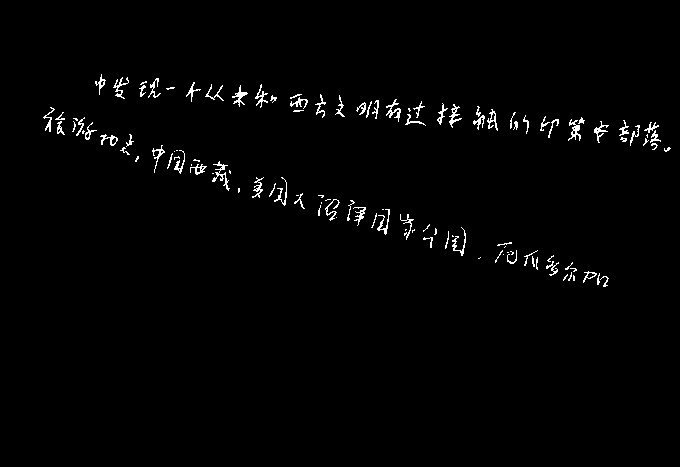 中发现一个从来和西方文明有过接触的印第安部落。
旅游地点，中国西藏，美国大沼泽国家公园，厄瓜多尔加